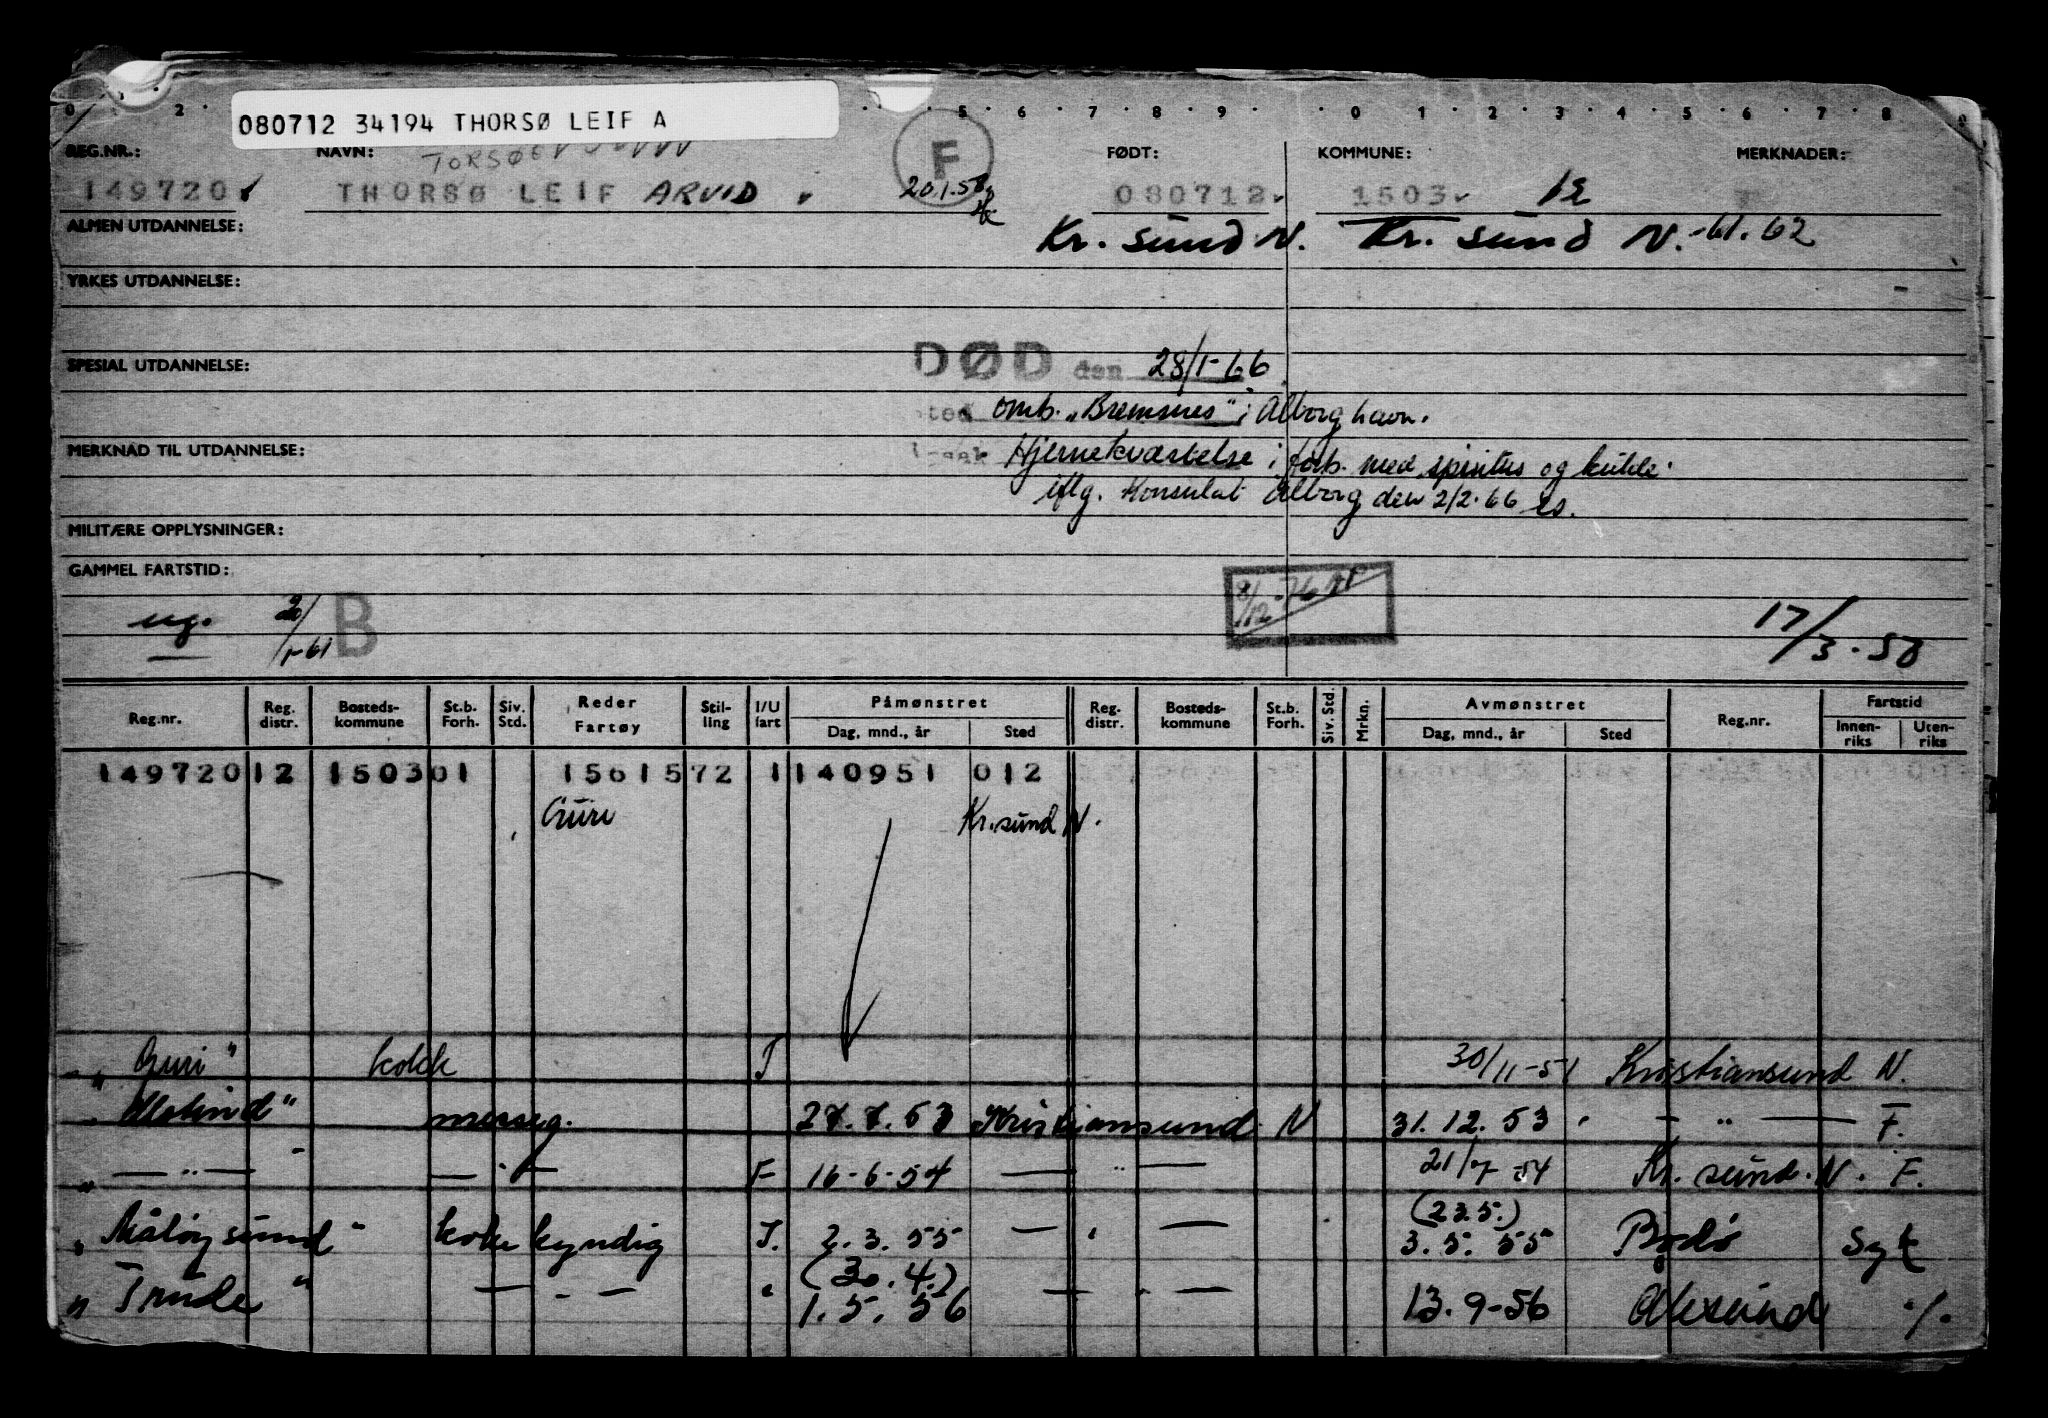 080712 34194 THORSØ LEIF A
0 2 5 6 7 8 9 0 1 2 3 4 5 6 7 8 9
REG.NR.: NAVN: TORSØ F FØDT: KOMMUNE: MERKNADER:
149720 THORSØ LEIF ARVID 20.1.58 080712 1503 1E
ALMEN UTDANNELSE: Kr. sund N. Kr. sund N. -61. 62
YRKES UTDANNELSE:
SPESIAL UTDANNELSE: DØD den 28/1-66
sted omb. „Bremsnes" i Ålborg havn.
MERKNAD TIL UTDANNELSE: Hjernekvæstelse i forb. med spiritus og kulde.
iflg. Konsulat Ålborg den 2/2-66 es.
MILITÆRE OPPLYSNINGER:
GAMMEL FARTSTID:
ug. 2/1-61 B 8/12-76 17/3-58
Reg.nr. Reg. distr. Bosteds-kommune St.b. Forh. Siv. Std. Reder Fartøy Stil-ling I/U fart Påmønstret Dag, mnd., år Sted Reg. distr. Bosteds-kommune St.b. Forh. Siv. Std. Mrkn. Avmønstret Dag, mnd., år Sted Reg.nr. Fartstid Innen-riks Uten-riks
149720 12 1503 01 1561572 1 140951 012
Guri Kr.sund N.
„Guri" kokk I 30/11-51 Kristiansund N.
messeg. 27.7.53 Kristiansund N 31.12.53 — „ — F.
„ — „ — — „ — F 16-6-54 — „ — 21/7-54 Kr. sund. N. F.
„Måløysund" koke kyndig I. 2.3.55 — „ — (23.5.) 3.5.55 Bodø Syk
„Trude" — „ — „ (30.4.) 1.5.56 — „ — 13.9-56 Ålesund ./.